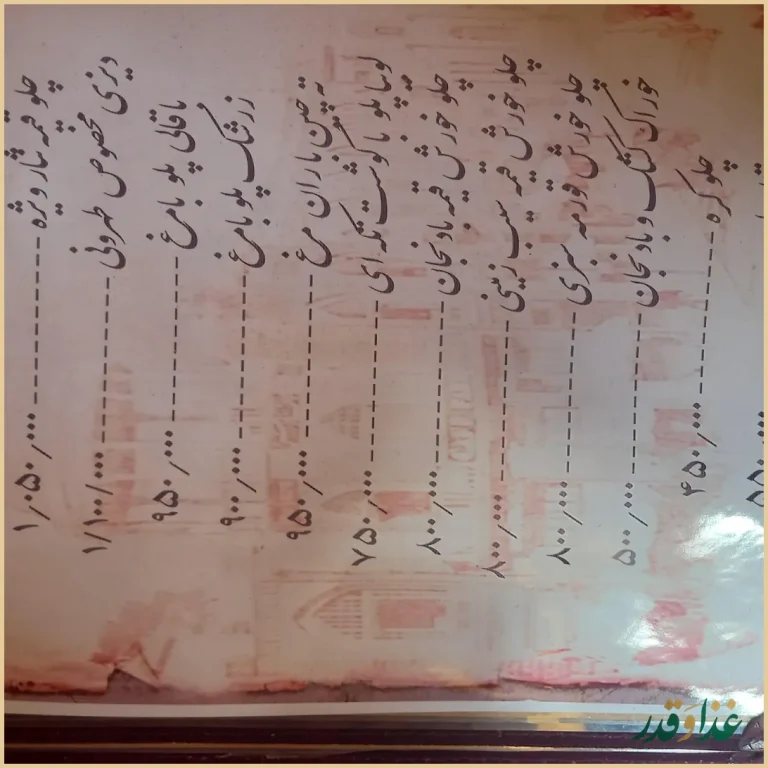 چلو قیمه نثار ویژه ---------------- ۱,۰۵۰,۰۰۰
دیزی مخصوص طهرونی ---------------- ۱/۱۰۰/۰۰۰
باقالی پلو با مرغ ---------------- ۹۵۰,۰۰۰
زرشک پلو با مرغ ---------------- ۹۰۰,۰۰۰
ته چین باران مرغ ---------------- ۹۵۰,۰۰۰
لوبیا پلو با گوشت تکه ای ---------------- ۷۵۰,۰۰۰
چلو خورش قیمه بادنجان ---------------- ۸۰۰,۰۰۰
چلو خورش قیمه سیب زمینی ---------------- ۸۰۰,۰۰۰
چلو خورش قورمه سبزی ---------------- ۸۰۰,۰۰۰
خوراک کشک و بادنجان ---------------- ۵۰۰,۰۰۰
چلو کره ---------------- ۴۵۰,۰۰۰
غذا و قدر